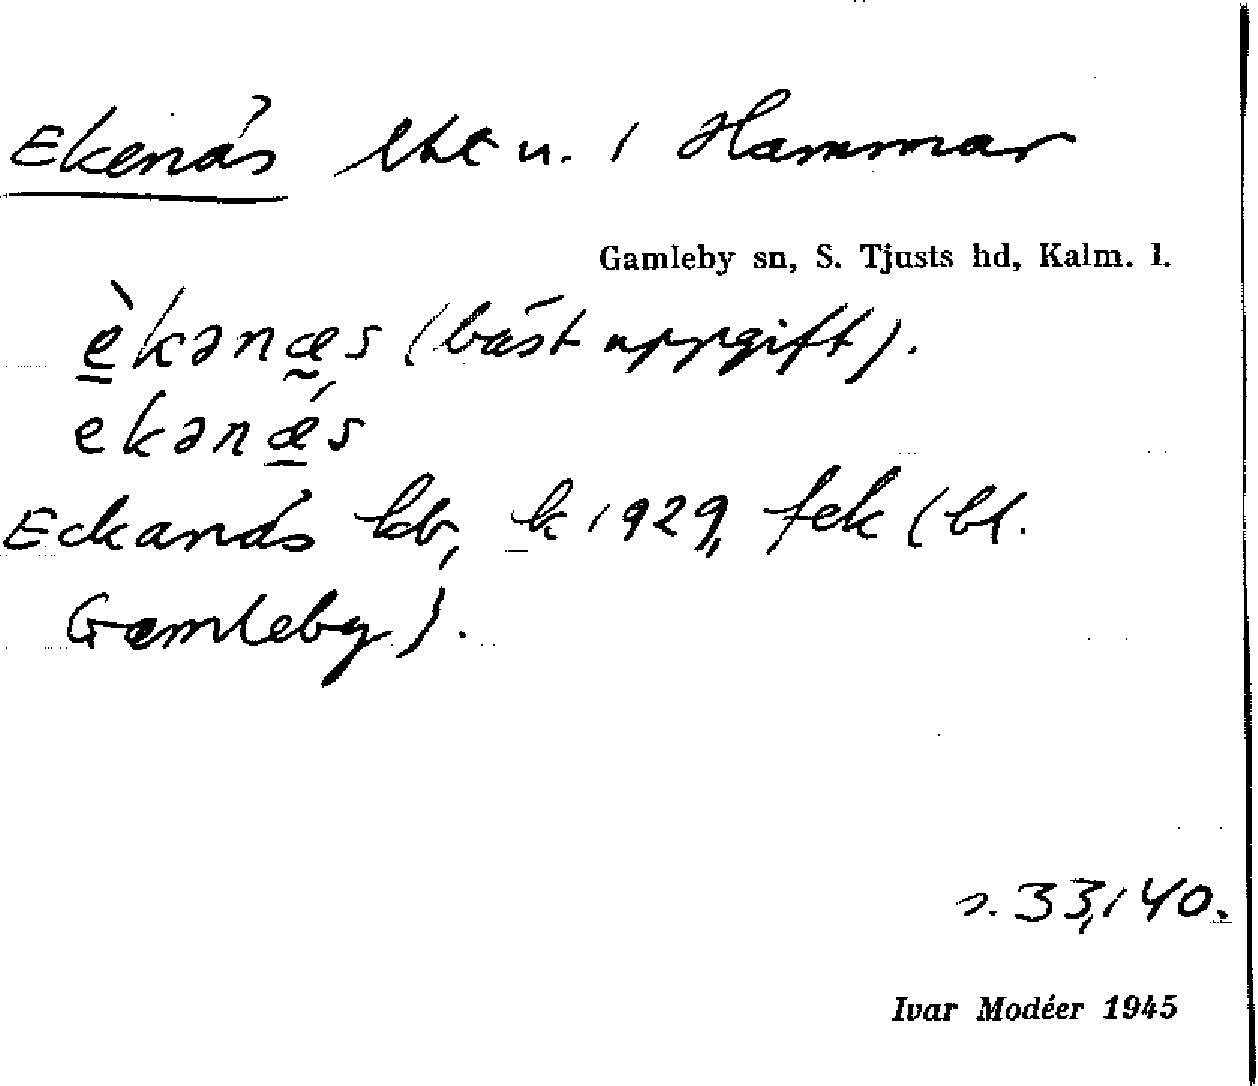 Ekenäs lht u. i Hammar
Gamleby sn, S. Tjusts hd, Kalm. l.
èkənæs (bäst uppgift).
ekənǽs
Eckanäs kb, k 1929, fek (bl.
Gamleby).
s. 33, 140.
Ivar Modéer 1945